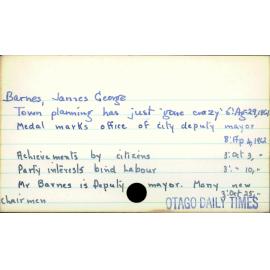 Barnes, James George
Town planning has just "gone crazy" 6: Ag 29, 1961
Medal marks office of city deputy mayor
8: Ap 4, 1962
Achievements by citizens 3: Oct 3, -
Party interests bind Labour 3: " 10, -
Mr Barnes is Deputy mayor. Many new
chairmen 3: Oct 25, -
OTAGO DAILY TIMES